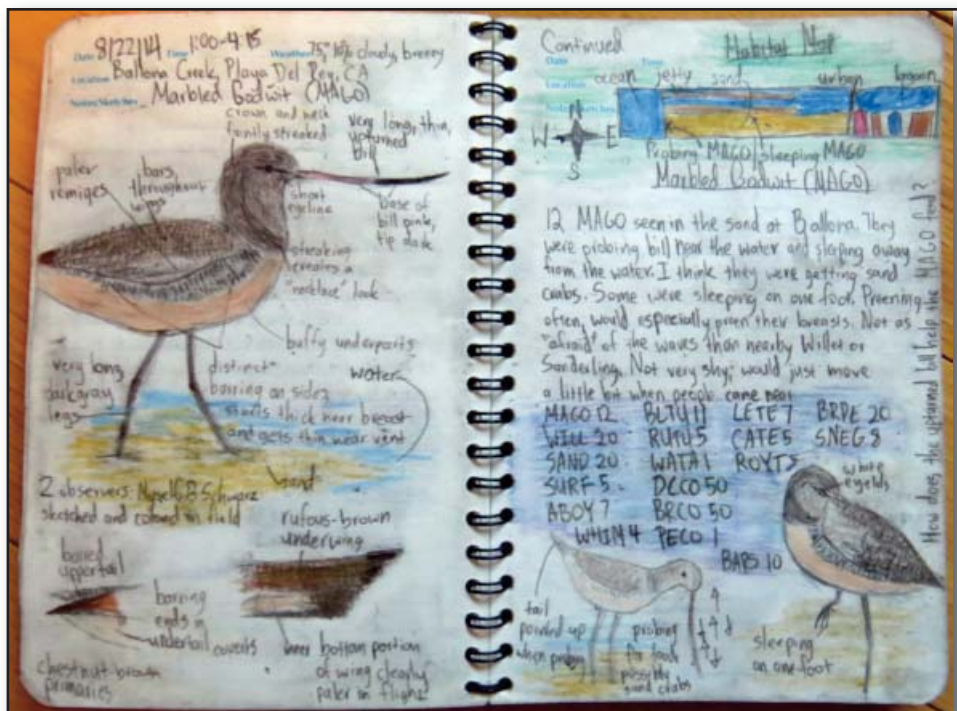 Date 8/22/14 Time 1:00-4:15 Weather 75°, 10% cloudy, breezy
Location Ballona Creek, Playa Del Rey, CA
Marbled Godwit (MAGO)
crown and neck
finely streaked
very long, thin,
upturned
bill
paler
remiges
bars
throughout
wings
short
eyeline
base of
bill pink,
tip dark
streaking
creates a
"necklace" look
buffy underparts
very long,
dark gray
legs
distinct
barring on sides
starts thick near breast
and gets thin near vent
water
sand
2 observers: Myself & B Schwarz
sketched and colored in field
barred
uppertail
barring
ends in
undertail coverts
chestnut-brown
primaries
rufous-brown
underwing
inner bottom portion
of wing clearly
paler in flight
Continued
Habitat Map
Date Time
Location
ocean jetty sand urban lagoon
N
W E
S
Probing MAGO sleeping MAGO
Marbled Godwit (MAGO)
12 MAGO seen in the sand at Ballona. They
were probing bill near the water and sleeping away
from the water. I think they were getting sand
crabs. Some were sleeping on one foot. Preening
often, would especially preen their breasts. Not as
"afraid" of the waves than nearby Willet or
Sanderling. Not very shy; would just move
a little bit when people came near
MAGO 12 BLTU 11 LETE 7 BRPE 20
WILL 20 RUTU 5 CATE 5 SNEG 8
SAND 20 WATA 1 ROYT 5
SURF 5 DCCO 50
ABOY 7 BRCO 50
WHIM 4 PECO 1
BARS 10
white
eyelids
tail
pointed up
when probing
probing
for food
possibly
sand crabs
sleeping
on one foot
How does the upturned bill help the MAGO feed?